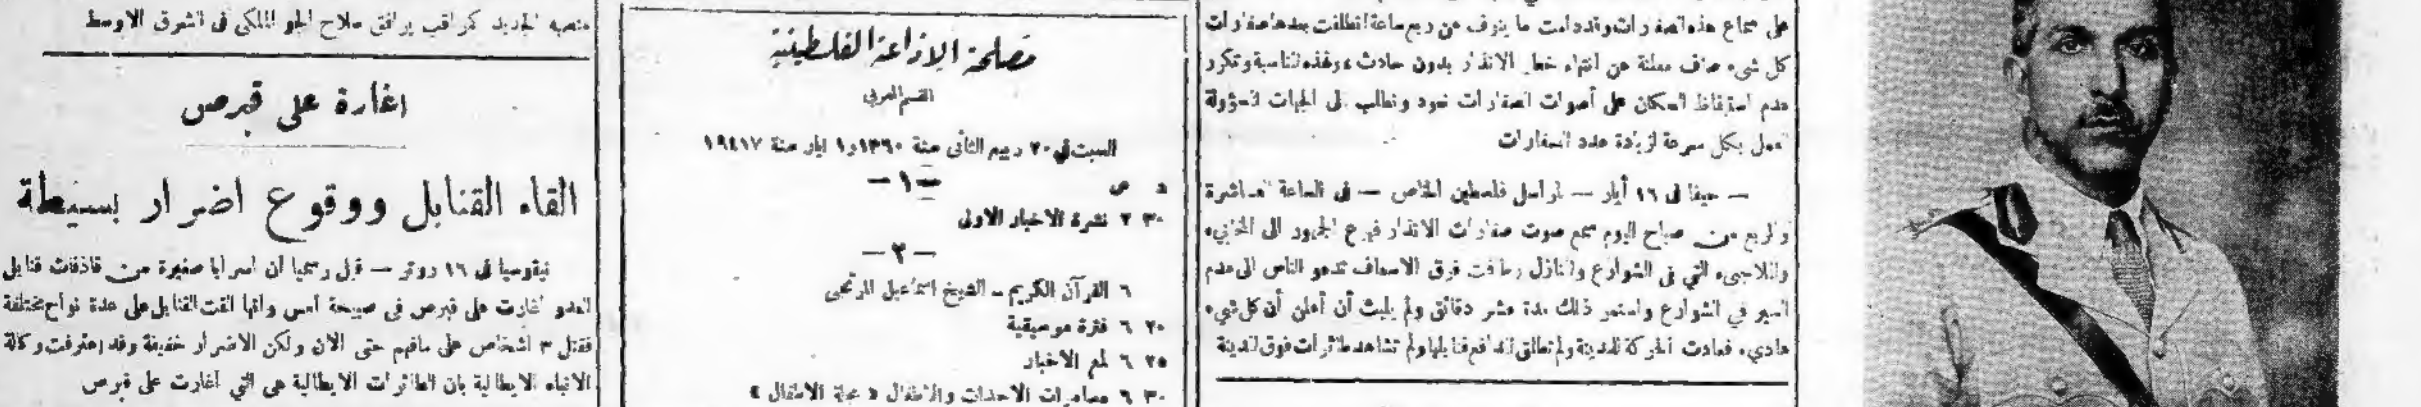 على سماع هذه الصفارات وقد دامت ما ينوف عن ربع ساعة انطلقت بعدها صفارات
كل شيء صاف معلنة عن انتهاء خطر الانذار بدون حادث وبهذه المناسبة وتكرر
عدم استيقاظ السكان على أصوات الصفارات نعود ونطلب الى الجهات المسؤولة
العمل بكل سرعة لزيادة عدد الصفارات
— حيفا في ١٦ أيار — لمراسل فلسطين الخاص — في الساعة العاشرة
والربع من صباح اليوم سمع صوت صفارات الانذار فهرع الجمهور الى المخابيء
والملاجيء التي في الشوارع والمنازل وطافت فرق الاسعاف تدعو الناس الى عدم
السير في الشوارع واستمر ذلك مدة عشر دقائق ولم يلبث أن أعلن أن كل شيء
هاديء فعادت الحركة للمدينة ولم تطلق المدافع قنابلها ولم تشاهد طائرات فوق المدينة
مصلحة الاذاعة الفلسطينية
القسم العربي
السبت في ٢٠ ربيع الثاني سنة ١٣٦٠ و١ ايار سنة ١٩٤١٧
— ١ —
د س
٣٠ ٢ نشرة الاخبار الاولى
— ٢ —
٦ القرآن الكريم - الشيخ اسماعيل المرتجى
٢٠ ٦ فترة موسيقية
٢٥ ٦ لمع الاخبار
٣٠ ٦ مسامرات الاحداث والاطفال « مجلة الاطفال »
منصبه الجديد كمراقب يرافق سلاح الجو الملكي في الشرق الاوسط
اغارة على قبرص
القاء القنابل ووقوع اضرار بسيطة
نيقوسيا في ١٦ روتر — قيل رسميا ان اسرابا صغيرة من قاذفات قنابل
العدو أغارت على قبرص في صبيحة امس وانها القت القنابل على عدة نواح مختلفة
فقتل ٣ اشخاص على ما فهم حتى الان ولكن الاضرار خفيفة وقد اعترفت وكالة
الانباء الايطالية بان الطائرات الايطالية هي التي أغارت على قبرص